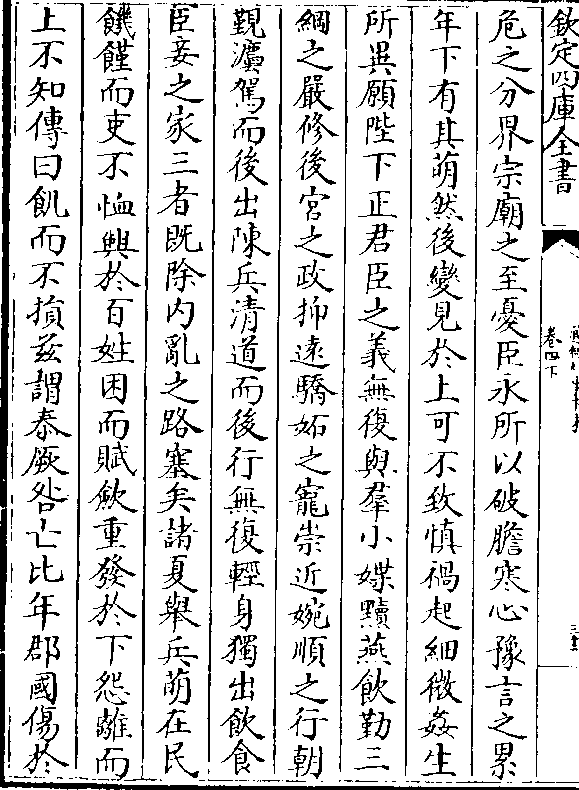 欽定四庫全書
卷四下
危之分界宗廟之至憂臣永所以破膽寒心豫言之累
年下有其萌然後變見於上可不致慎禍起細微姦生
所昜願陛下正君臣之義無復與羣小媟黷燕飲勤三
綱之嚴修後宮之政抑遠驕妬之寵崇近婉順之行朝
覲灋駕而後出陳兵清道而後行無復輕身獨出飲食
臣妾之家三者既除内亂之路塞矣諸夏舉兵萌在民
饑饉而吏不恤興於百姓困而賦斂重發於下怨離而
上不知傳曰飢而不損兹謂泰厥咎亡比年郡國傷於